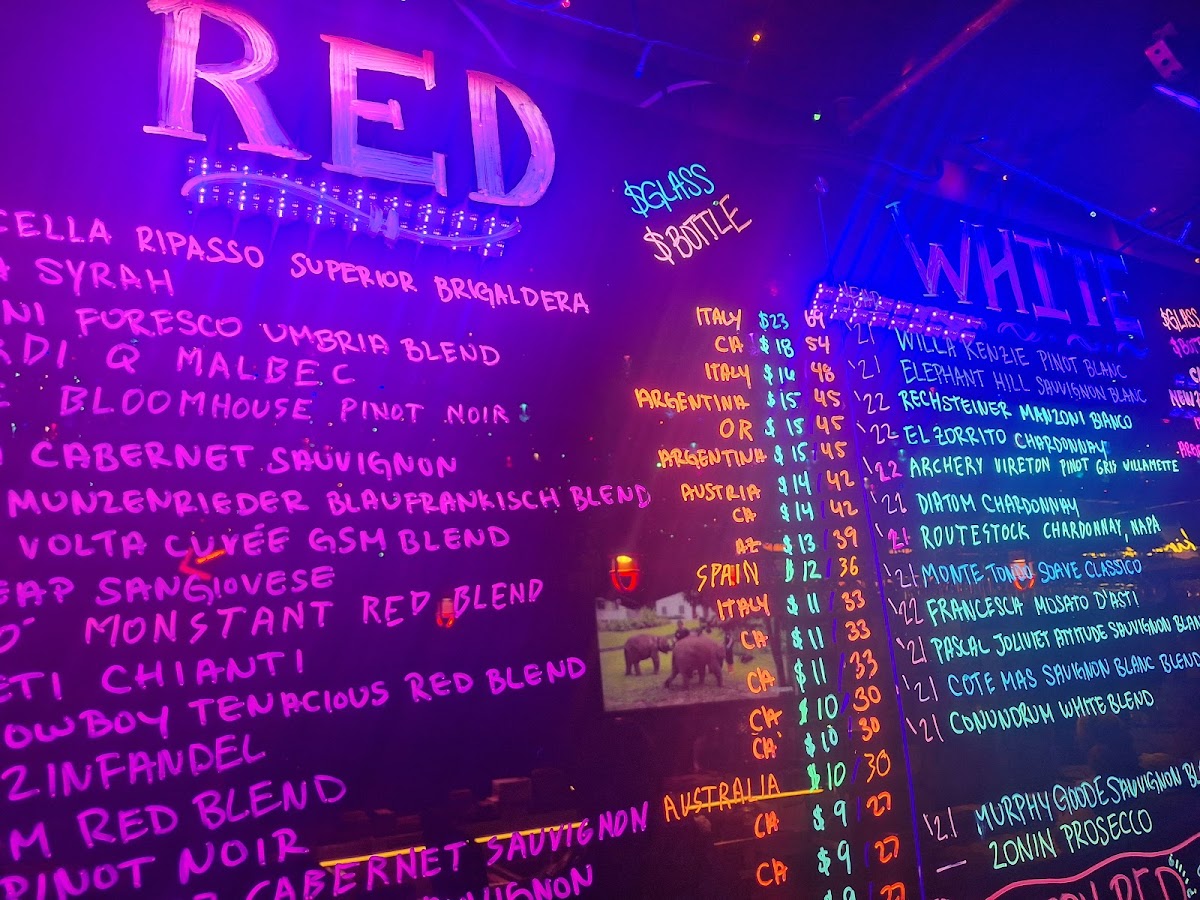 RED
$GLASS
$BOTTLE
CELLA RIPASSO SUPERIOR BRIGALDERA
SYRAH
NI FORESCO UMBRIA BLEND
RDI Q MALBEC
BLOOMHOUSE PINOT NOIR
CABERNET SAUVIGNON
MUNZENRIEDER BLAUFRANKISCH BLEND
VOLTA CUVÉE GSM BLEND
EAP SANGIOVESE
MONSTANT RED BLEND
ETI CHIANTI
OWBOY TENACIOUS RED BLEND
ZINFANDEL
M RED BLEND
PINOT NOIR
CABERNET SAUVIGNON
ITALY $23 69
CA $18 54
ITALY $16 48
ARGENTINA $15 45
OR $15 45
ARGENTINA $15 45
AUSTRIA $14 42
CA $14 42
AZ $13 39
SPAIN $12 36
ITALY $11 33
CA $11 33
CA $11 33
CA $10 30
CA $10 30
AUSTRALIA $10 30
CA $9 27
CA $9 27
WHITE
$GLASS
'21 WILLA KENZIE PINOT BLANC
'21 ELEPHANT HILL SAUVIGNON BLANC
'22 RECHSTEINER MANZONI BIANCO
'22 EL ZORRITO CHARDONNAY
'22 ARCHERY VIRETON PINOT GRIS WILLAMETTE
'21 DIATOM CHARDONNAY
'21 ROUTESTOCK CHARDONNAY, NAPA
'21 MONTE TONDO SOAVE CLASSICO
'22 FRANCESCA MOSATO D'ASTI
'21 PASCAL JOLIVET ATTITUDE SAUVIGNON BLAN
'21 COTE MAS SAUVIGNON BLANC BLEND
'21 CONUNDRUM WHITE BLEND
'21 MURPHY GOODE SAUVIGNON BL
— ZONIN PROSECCO